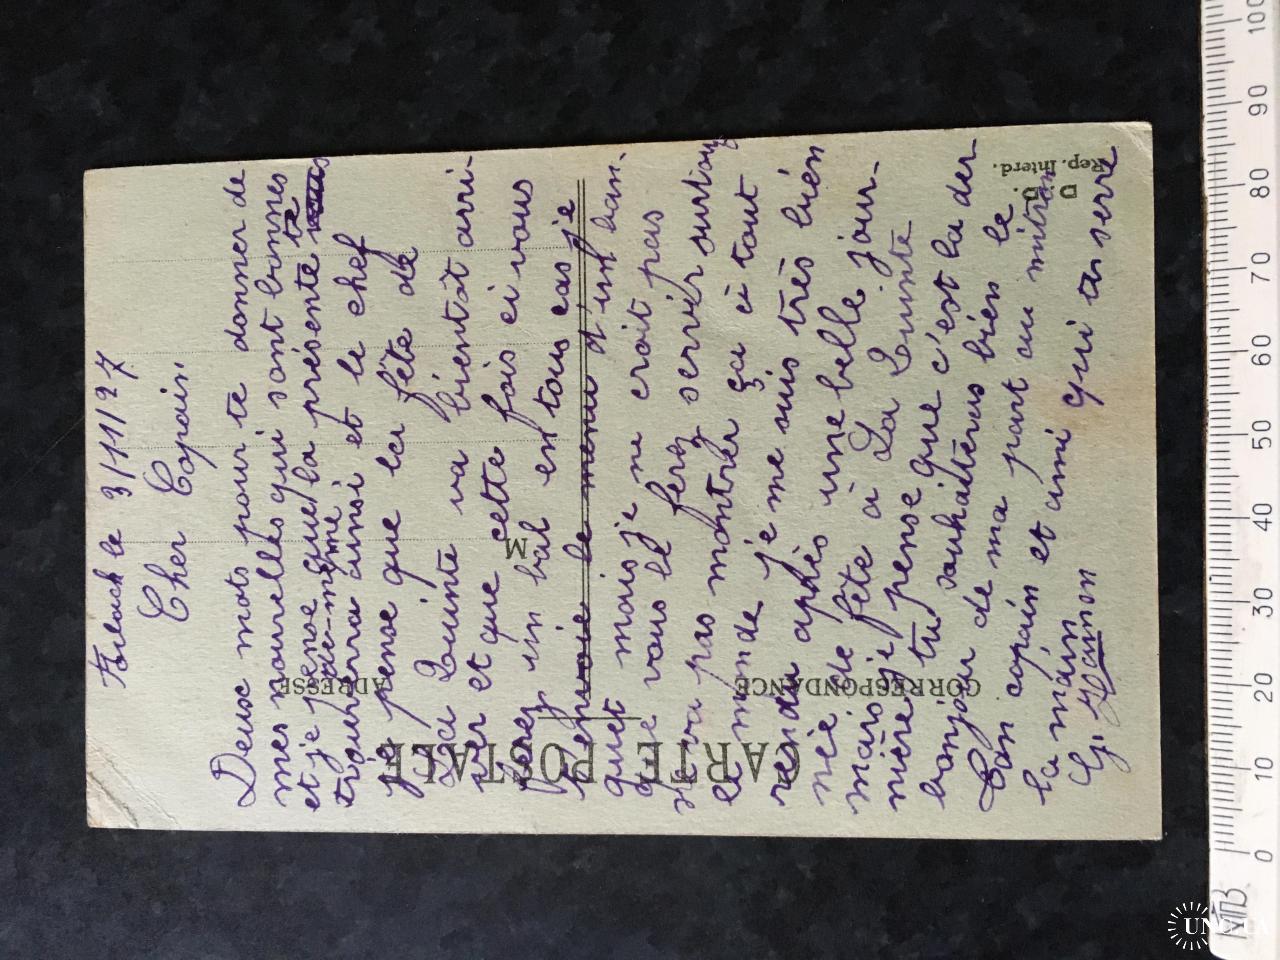 le 3/11/27
Cher Copain.
Deux mots pour te donner de
mes nouvelles qui sont bonnes
et je pense que la présente te
trouvera ainsi et le chef
de-même
je pense que la fête de
La Quinte va bientôt arri-
ver et que cette fois ci vous
ferez un bal en tous cas je
le menu d'un ban-
quet mais je ne croit pas
que vous le ferez servir surtout
ne va pas montrer ça à tout
le monde je me suis très bien
rendu après une belle jour-
née de fête à La Quinte
mais je pense que c'est la der
nière, tu souhaiteras bien le
bonjour de ma part au mitron
Ton copain et ami qui te serre
la main
G. Hamon
CARTE POSTALE
CORRESPONDANCE
ADRESSE
M
D.D.
Rep. Interd.
0 10 20 30 40 50 60 70 80 90 100
UNC.UA